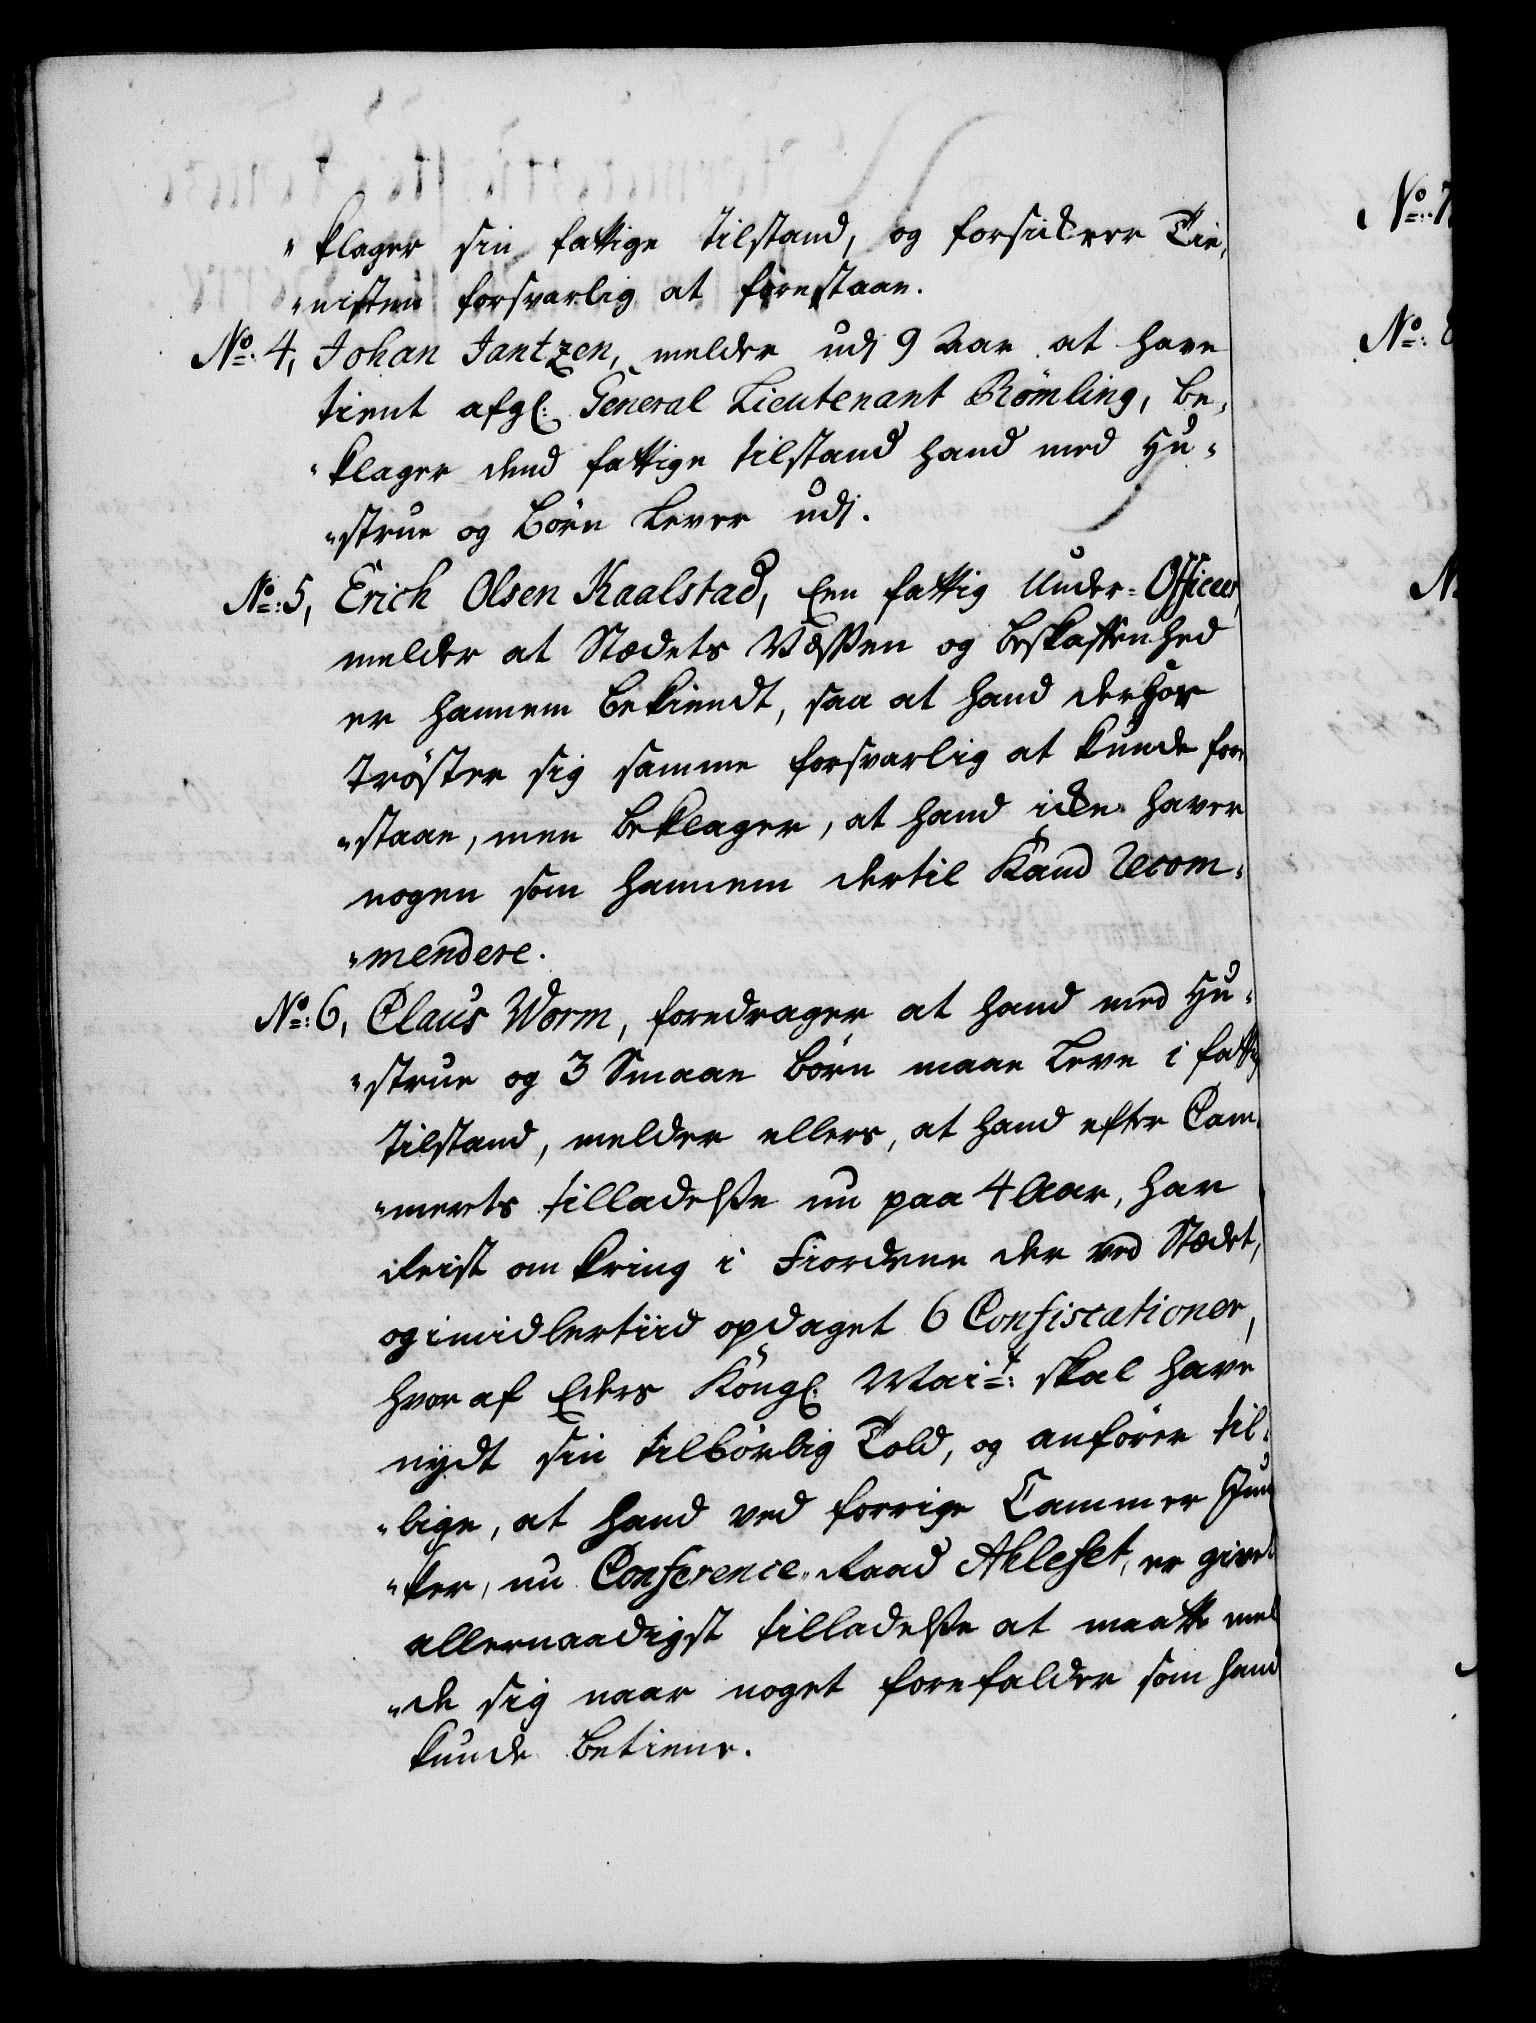 "klager sin fattige tilstand, og forsickrer Tie,
"nisten forsvarlig at forestaae.
No: 4, Johan Jantzen, melder udj 9 Aar at have
tient afgl: General Lieutenant Römling, be,
"klager dend fattige tilstand hand med Hu,
"strue og Börn lever udj.
No: 5, Erich Olsen Kaalstad, Een fattig Under-Officeer,
melder at Stædets Væssen og beskaffenhed
er hannem bekiendt, saa at hand derhos
tröster sig samme forsvarlig at kunde fore
"staae, men beklager, at hand icke haver
nogen som hannem dertil Kand Recom,
"mendere.
No: 6, Claus Worm, foredrager at hand med Hu,
"strue og 3 Smaae börn maae leve i fattig
tilstand, melder ellers, at hand efter Cam,
"merets tilladelsse nu paa 4 Aar, har
reist omkring i Fiordene der ved Stædet,
og imidlertiid opdaget 6 Confiscationer,
hvor af Eders Kongl: Mait: skal have
nydt sin tilbörlig Told, og anförer til,
"lige, at hand ved forrige Cammer Jun
"ker, nu Conference-Raad Ahlefelt, er givet
allernaadigst tilladelsse at maatte mel
"de sig naar noget forefalder som hand
kunde betiene.
No: 7
No: 8
N